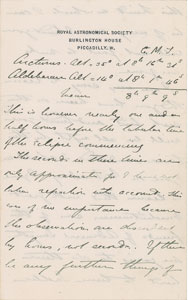 ROYAL ASTRONOMICAL SOCIETY
BURLINGTON HOUSE
PICCADILLY, W.
G.M.T.
Arcturus Alt = 35° at 8h 16m 30s
Aldebaran Alt = 14° at 8h 1m 46s
8h 9m 9s
This is however nearly one and a
half hours before the tabular time
of the eclipse commencing
The seconds in these times are
only approximate for I have not
taken refraction into account. This
was of no importance because
the observations are
by hours, not seconds. If there
be any further things of